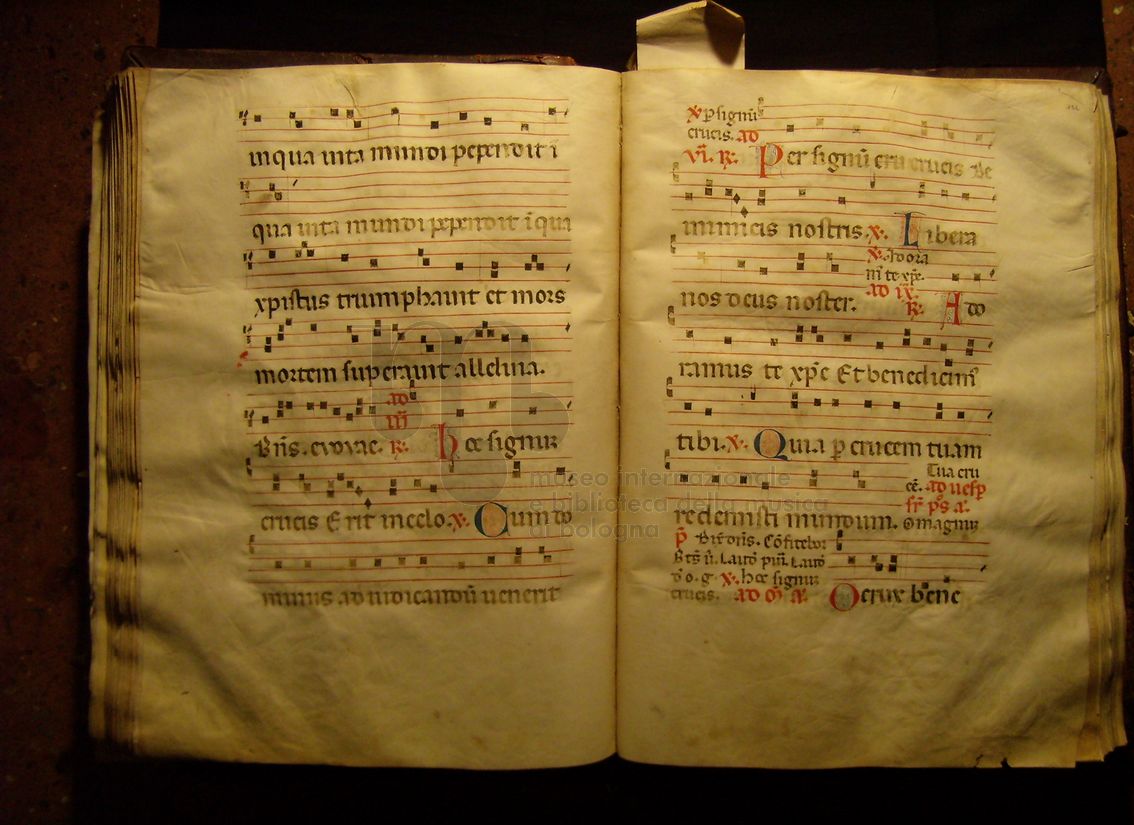 in qua vita mundi pependit i
qua vita mundi pependit i qua
xpistus triumphavit et mors
mortem superavit alleluia.
ad
iij
Bn̄s. evovae. R. hoc signuz
crucis Erit in celo. v. Cum do
minus ad iudicandū venerit
v. P signū
crucis. ad
vi. R. Per signū cru crucis De
inimicis nostris. v. Libera
v. Adora
m te xp̄e.
nos deus noster. ad ix. R. Ado
ramus te xp̄e Et benedicim
tibi. v. Quia p crucem tuam
Tua cru
cē. ad vesp
redemisti mundum. O magnū
p̄ Dn̄s. Confitebor
v. hoc signuz
crucis. ad O crux bene
museo internazionale
e biblioteca della musica
di bologna